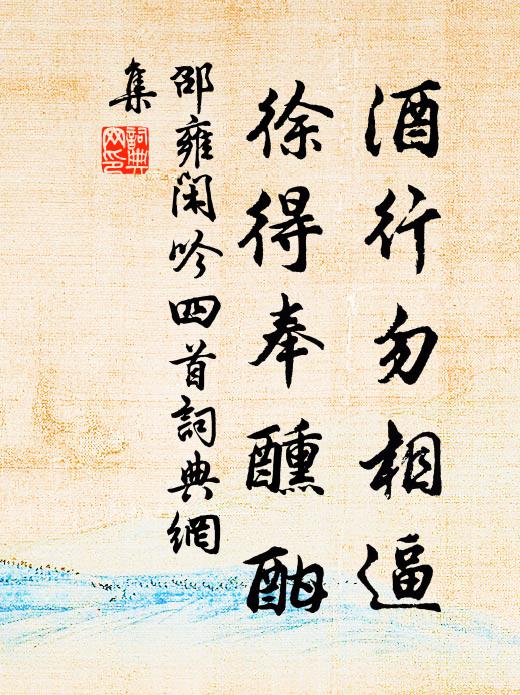 酒行勿相逼
徐得奉醺酣
邵雍閑吟四首詞典網
集
詞典
網印